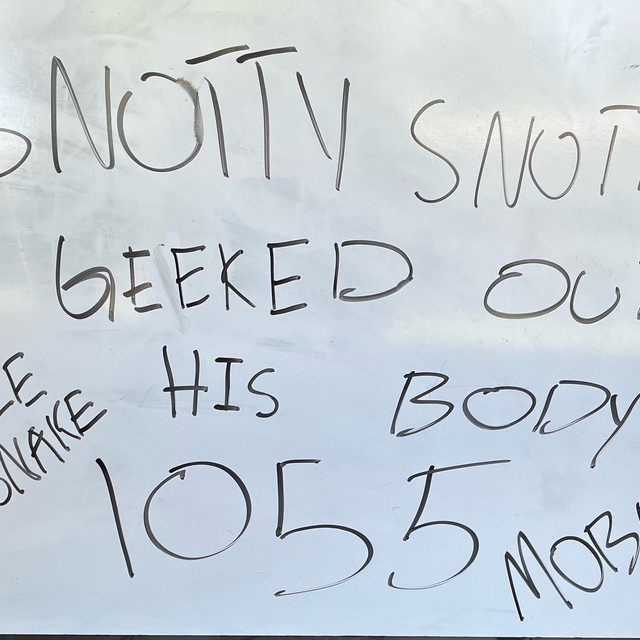 SNOTTY SNOT
GEEKED OU
HIS BODY
SNAKE
1055
MOB